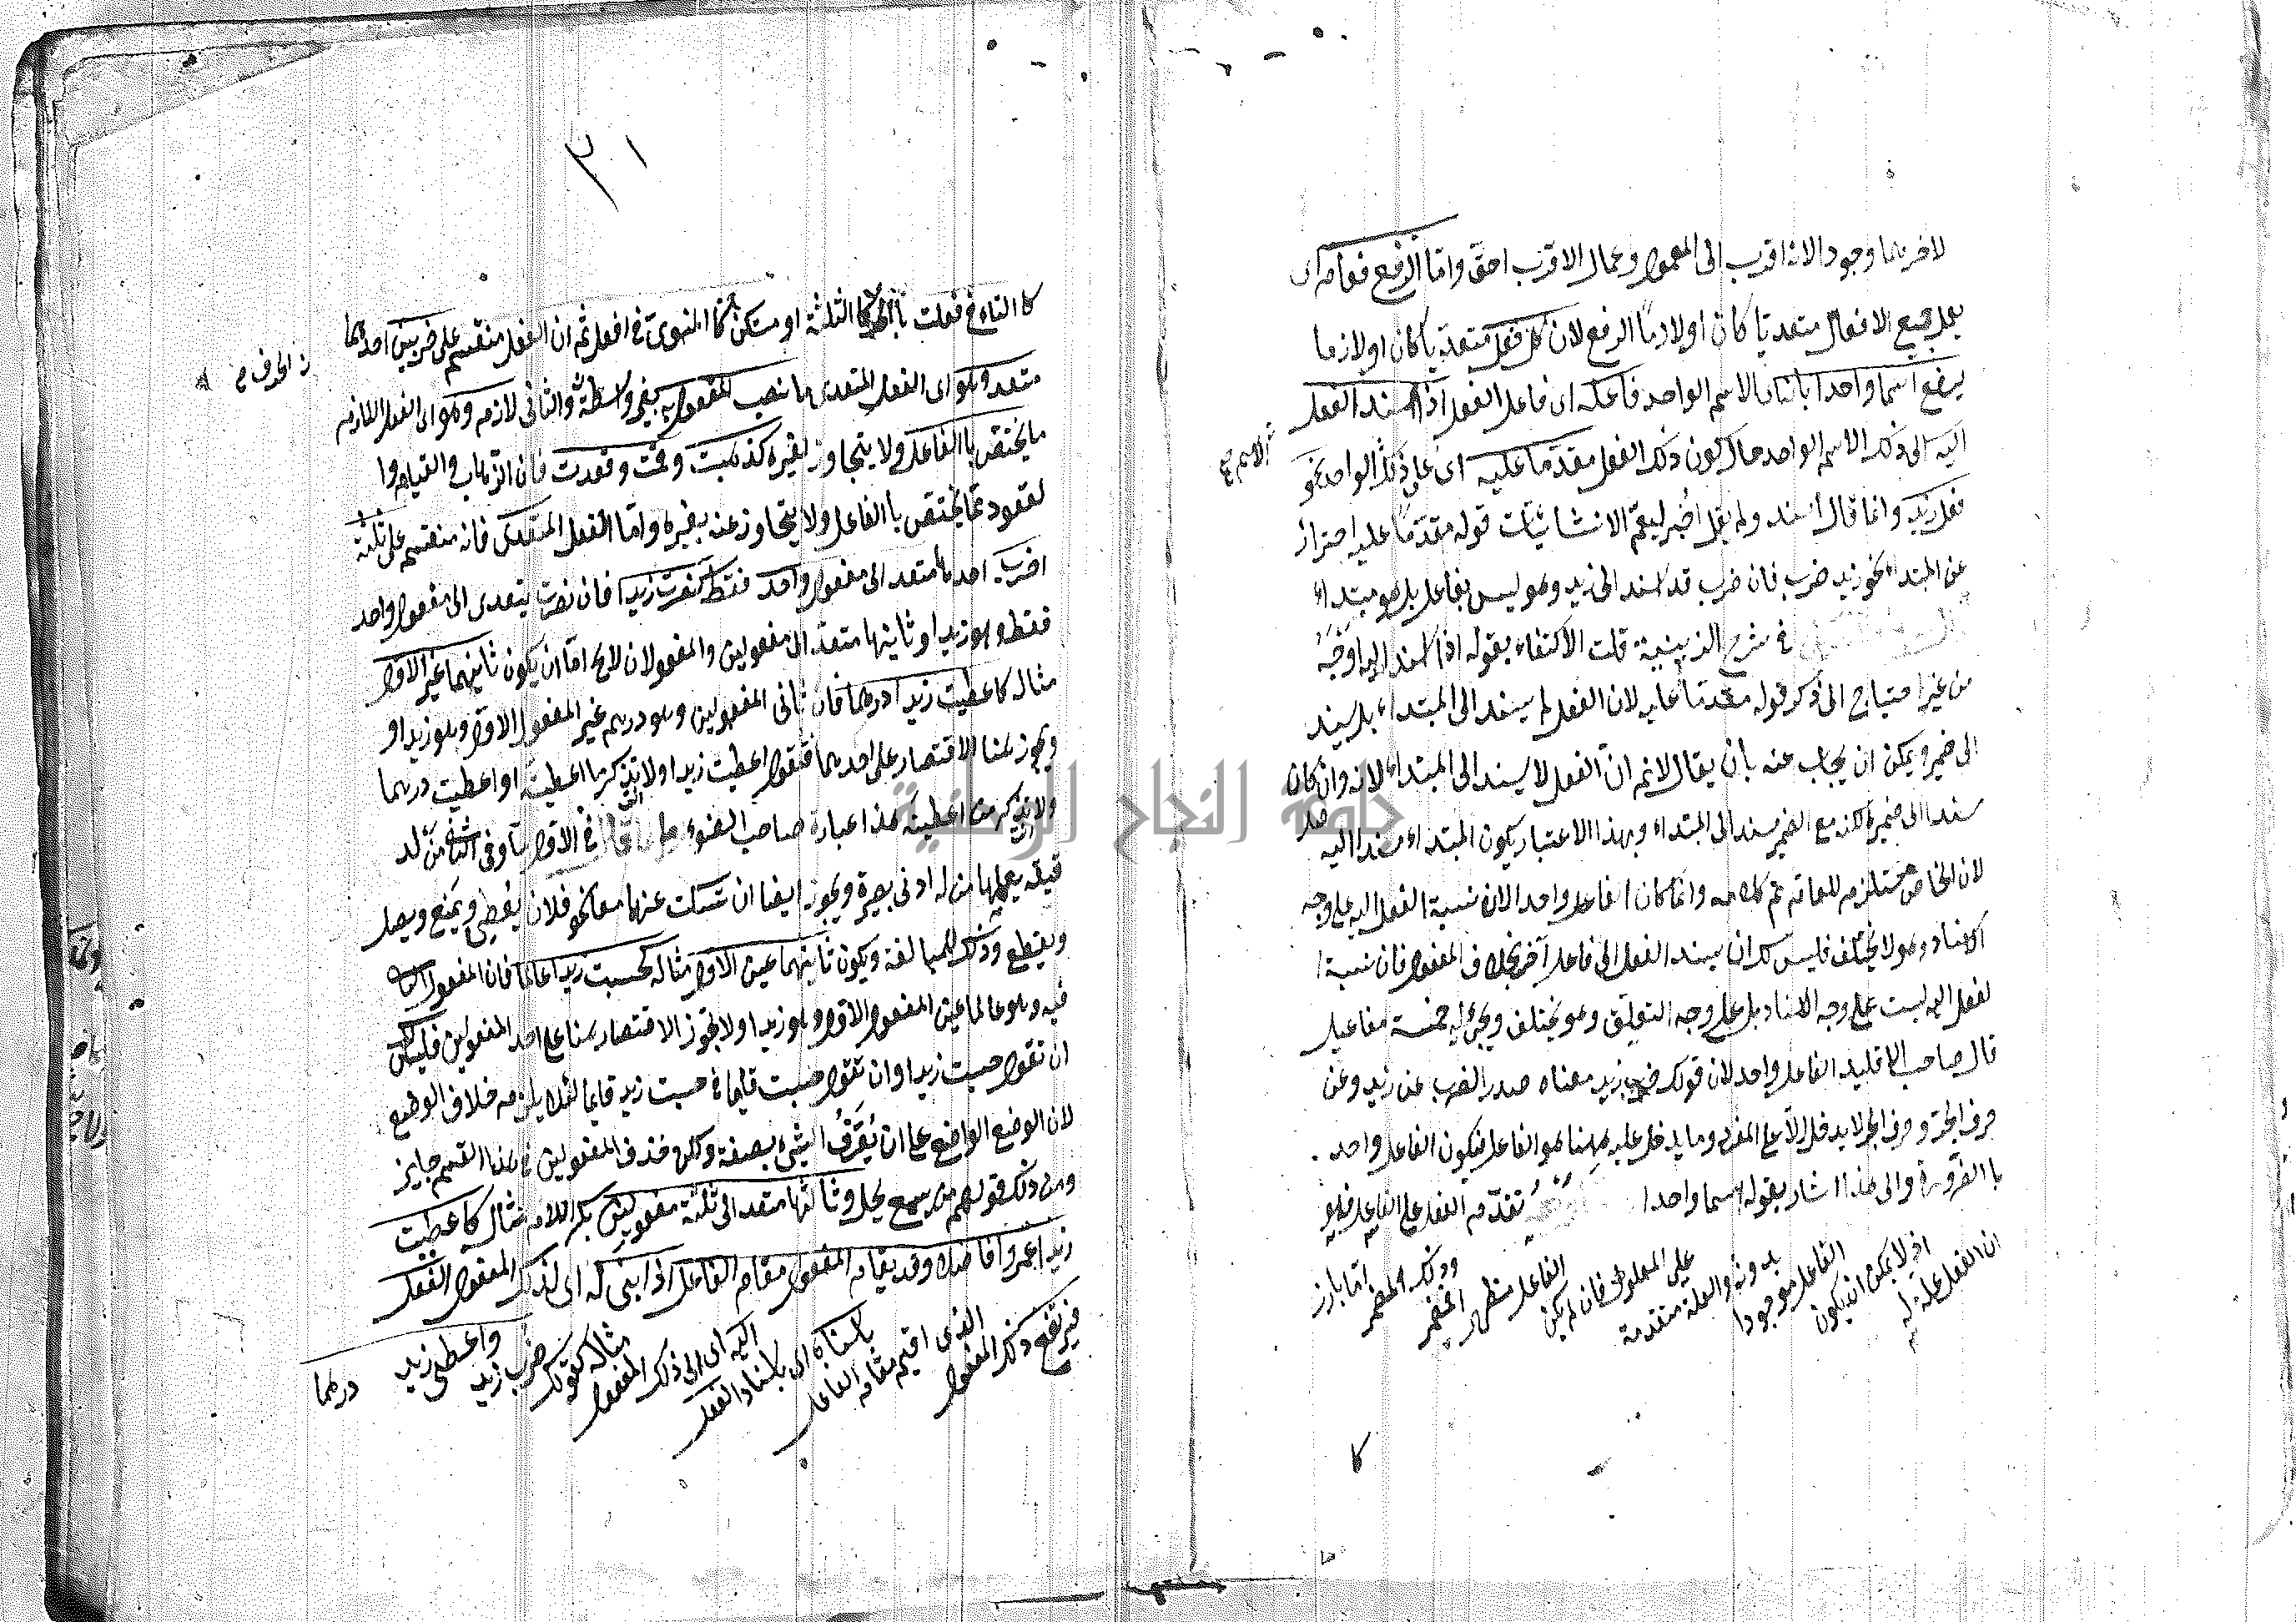 لاخرهما وجودا لانه اقرب الى المعمول وعمال الاقرب احق واما الرفع فعام اى
يعمل جميع الافعال متعديا كان او لازما الرفع لان كل فعل متعديا كان او لازما
يرفع اسما واحدا بانه اى الاسم الواحد فاعله اى فاعل الفعل اذا اسند الفعل
اليه الى ذلك الاسم الواحد حال كون ذلك الفعل مقدما عليه اى على ذلك الواحد نحو
الاسم صح
فعل زيد وانما قال اسند ولم يقل اخبر ليعم الانشائيات قوله مقدما عليه احتراز
عن المبتداء نحو زيد ضرب فان ضرب قد اسند الى زيد وهو ليس بفاعل بل هو مبتداء
فى شرح الزينبية قلت الاكتفاء بقوله اذا اسند اليه اوجه
من غير احتياج الى ذكر قوله مقدما عليه لان الفعل لم يسند الى المبتداء بل يسند
الى ضميره ويمكن ان يجاب عنه بان يقال لانم ان الفعل لا يسند الى المبتداء لانه وان كان
مسندا الى ضميره لكنه مع الضمير مسند الى المبتداء وبهذا الاعتبار يكون المبتداء مسندا اليه
لان الخاص مستلزم للعام تم كلامه وانما كان الفاعل واحدا لانه نسبة الفعل اليه على وجه
الاسناد وهو لا يختلف فليس لك ان يسند الفعل الى فاعل آخر بخلاف المفعول فان نسبة ا
لفعل اليه ليست على وجه الاسناد بل على وجه التعلق وهو يختلف ويجئ له خمسة مفاعيل
قال صاحب الاقليد الفاعل واحد لان قولك ضرب زيد معناه صدر الضرب عن زيد وعن
حرف الجر وحرف الجر لا يدخل الا على المفرد وما يدخل عليه ههنا هو الفاعل فيكون الفاعل واحد
با الضرورة والى هذا اشار بقوله اسما واحدا تقدم الفعل على الفاعل فلهو
ان الفعل علة له
اذ لا يمكن ان يكون
الفاعل موجودا
بدونه والعلة متقدمة
على المعلول فان لم يكن
الفاعل مظهرا فمضمر
وذلك المضمر
اما بارز
كا
٣١
كا التاء فى فعلت با الحركات الثلثة او مستكن كما المنوى فى افعل ثم ان الفعل منقسم على ضربين احدهما
متعد وهو اى الفعل المتعدى ما نصب المفعول به بغير واسطة والثانى لازم وهو اى الفعل اللازم
الحرف
ما يختص با الفاعل ولا يتجاوز لغيره كذهبت وقمت وقعدت فان الذهاب والقيام وا
لقعود مما يختص با الفاعل ولا يتجاوز عنه بغيره واما الفعل المتعدى فانه منقسم على ثلثة
اضرب احدها متعد الى مفعول واحد فقط كنصرت زيدا فان نصرت يتعدى الى مفعول واحد
فقط وهو زيدا وثانيها متعد الى مفعولين والمفعولان لا يخ اما ان يكون ثانيهما غير الاول
مثاله كاعطيت زيدا درهما فان ثانى المفعولين وهو درهم غير المفعول الاول وهو زيدا و
ويجوز هنا الاقتصار على احدهما فتقول اعطيت زيدا ولا تذكر ما اعطيته او اعطيت درهما
ولا تذكر من اعطيته هذا عبارة صاحب الضوء قال فى الاول ما وفى الثانى من لد
قيقة يعلمها من له ادنى بصيرة ويجوز ايضا ان تسكت عنهما معا نحو فلان يعطى ويمنع ويصل
ويقطع وذلك للمبالغة ويكون ثانيهما عين الاول مثاله كحسبت زيدا عالما فان المفعول الثانى
فيه وهو عالما عين المفعول الاول وهو زيدا ولا يجوز الاقتصار هنا على احد المفعولين فليس لك
ان تقول حسبت زيدا وان تقول حسبت قايما فى حسبت زيد قايما لئلا يلزم خلاف الوضع
لان الوضع الواضع على ان يعرف الشئ بصفة ولكن حذف المفعولين فى هذا القسم جايز
ومن ذلك قولهم من يسمع يخل وثالثها متعد الى ثلثة مفعولين بكسر اللام مثاله كاعلمت
زيدا عمروا فاضلا وقد يقام المفعول مقام الفاعل اذا بنى له اى لذلك المفعول الفعل
فيرتفع ذلك المفعول
الذى اقيم مقام الفاعل
باسناده اى باسناد الفعل
اليه اى الى ذلك المفعول
مثاله كقولك
ضرب زيد
واعطى زيد
درهما
جامعة النجاح الوطنية